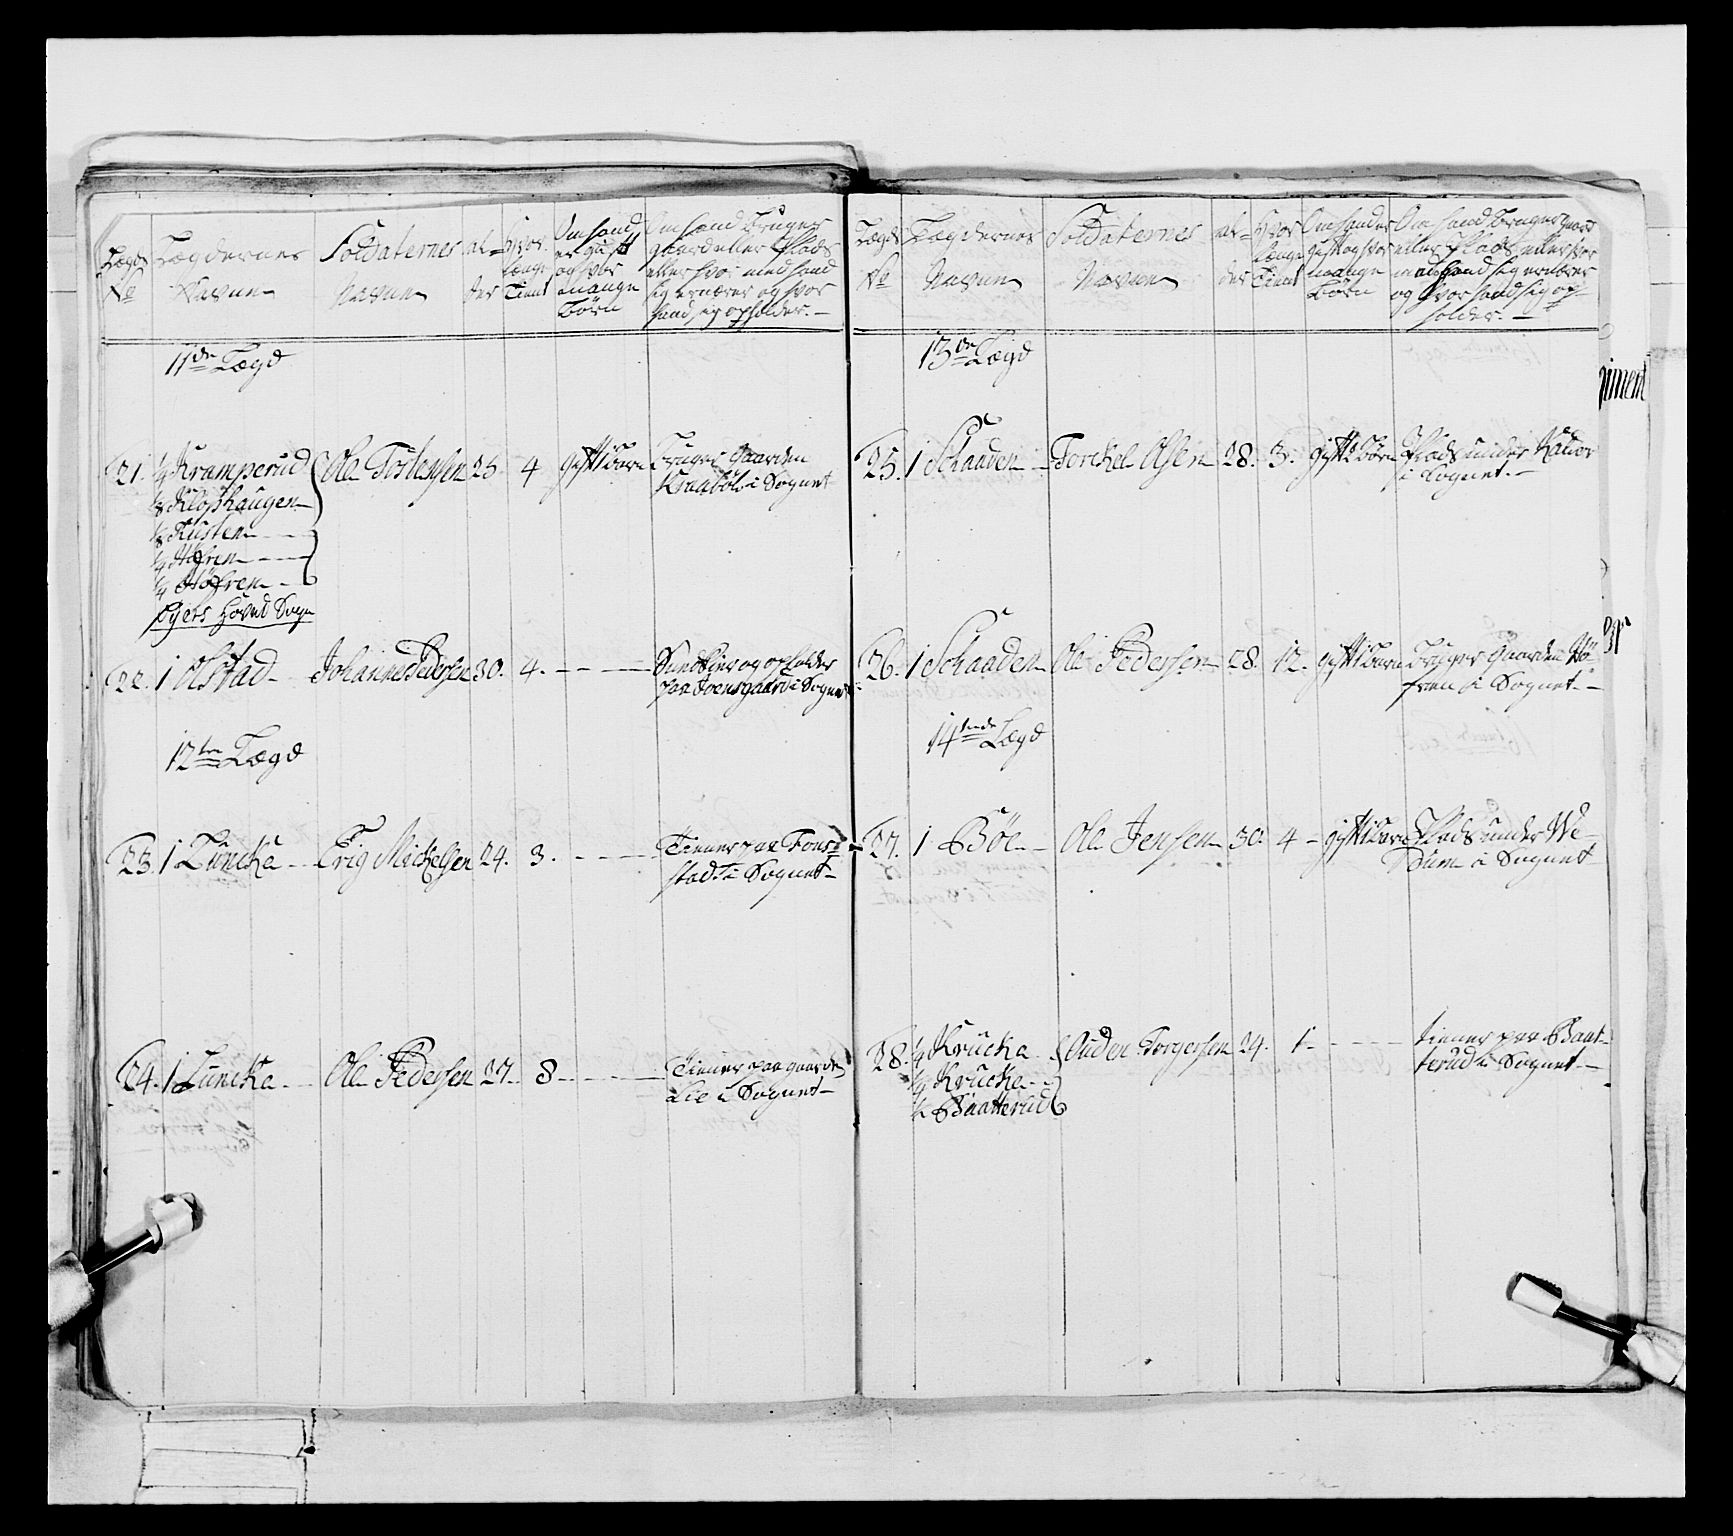 Lægds
No
Lægdernes
Navne
Soldaternes
Navne
al=
der
Hvor
længe
Tient
Om hand
er gift
og hvor
mange
Börn
Om hand Bruger
gaard eller Plads
eller hvor med hand
sig ernærer og hvor
hand sig opholder. —
11de Lægd
21. 1/4 Kramperud
1/8 Klophaugen
1/8 Kusten
1/4 Höfren
1/4 Höfren
Öyers Hoved Sogn
Ole Torstensen 25. 4 gift 1 barn
Bruger Gaarden
Kraaböl i Sognet
22. 1 Olstad — Johannes Pedersen 30. 4. — — —
og opholder
paa Joensgaard i Sognet
12te Lægd
23. 1 Luncka — Erig Mickelsen 24. 3. — — —
Tienner paa Fons=
stad i Sognet —
24. 1 Luncka — Ole Pedersen 27. 8 — — —
Tienner paa gaarden
Lie i Sognet —
Lægds
No
Lægdernes
Navne
Soldaternes
Navne
al=
der
Hvor
længe
Tient
Om hand er
gift og hvor
mange
Börn
Om hand Bruger gaard
eller Plads eller hvor
med hand sig ernærer
og hvor hand sig op-
holder. —
13de Lægd
25. 1 Schaaden — Torckel Olsen 28. 3. gift 2 Börn
Plads under
i Sognet. —
26. 1 Schaaden — Ole Pedersen 28. 12. gift 1 Barn
Bruger Gaarden Hö-
fren i Sognet —
14tende Lægd
27. 1 Böe — Ole Jensen 30. 4 — gift 1 Barn
Plads under We-
dum i Sognet
28. 1/4 Krucka
1/4 Krucka
1/2 Baatterud
Auden Torgersen 24. 1 — — —
tienner paa Baat-
terud i Sognet —
giment